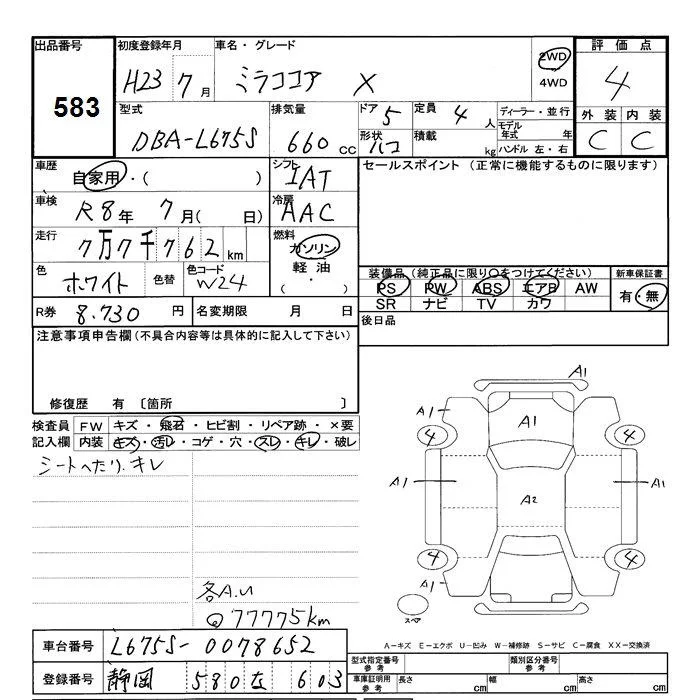 出品番号
583
初度登録年月
H23 7月
車名・グレード
ミラココア X
2WD
4WD
評価点
4
外装 内装
C C
型式
DBA-L675S
排気量
660 CC
ドア 5
形状 ハコ
定員 4 人
積載 kg
ディーラー・並行
モデル年式 年
ハンドル 左・右
車歴
自家用・( )
シフト
IAT
セールスポイント (正常に機能するものに限ります)
車検
R8年 7月( 日)
冷房
AAC
走行
7万7千762km
燃料
ガソリン
軽油
( ・ )
色
ホワイト
色替
色コード
W24
装備品(純正品に限り○をつけてください)
PS PW ABS エアB AW
SR ナビ TV カワ
新車保証書
有・無
R券 8.730 円
名変期限 月 日
後日品
注意事項申告欄(不具合内容等は具体的に記入して下さい)
修復歴 有 〔箇所 〕
検査員記入欄
FW キズ・飛石・ヒビ割・リペア跡・×要
内装 キズ・汚レ・コゲ・穴・スレ・キレ・破レ
シートへたり、キレ
各A.U
@77775km
A1
A1
A1
4
4
A1
A1
A2
4
4
A1
スペア
A-キズ E-エクボ U-凹み W-補修跡 S-サビ C-腐食 XX-交換済
車台番号
L675S-0078652
型式指定番号
参考
類別区分番号
参考
登録番号
静岡 580 を 603
車庫証明用
参考
長さ cm
幅 cm
高さ cm